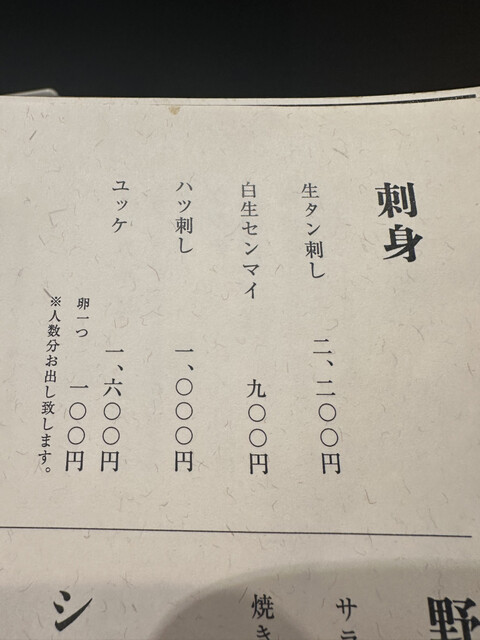 刺身
生タン刺し 二、二〇〇円
白生センマイ 九〇〇円
ハツ刺し 一、〇〇〇円
ユッケ 一、六〇〇円
卵一つ 一〇〇円
※人数分お出し致します。
野
サラ
焼き
シ